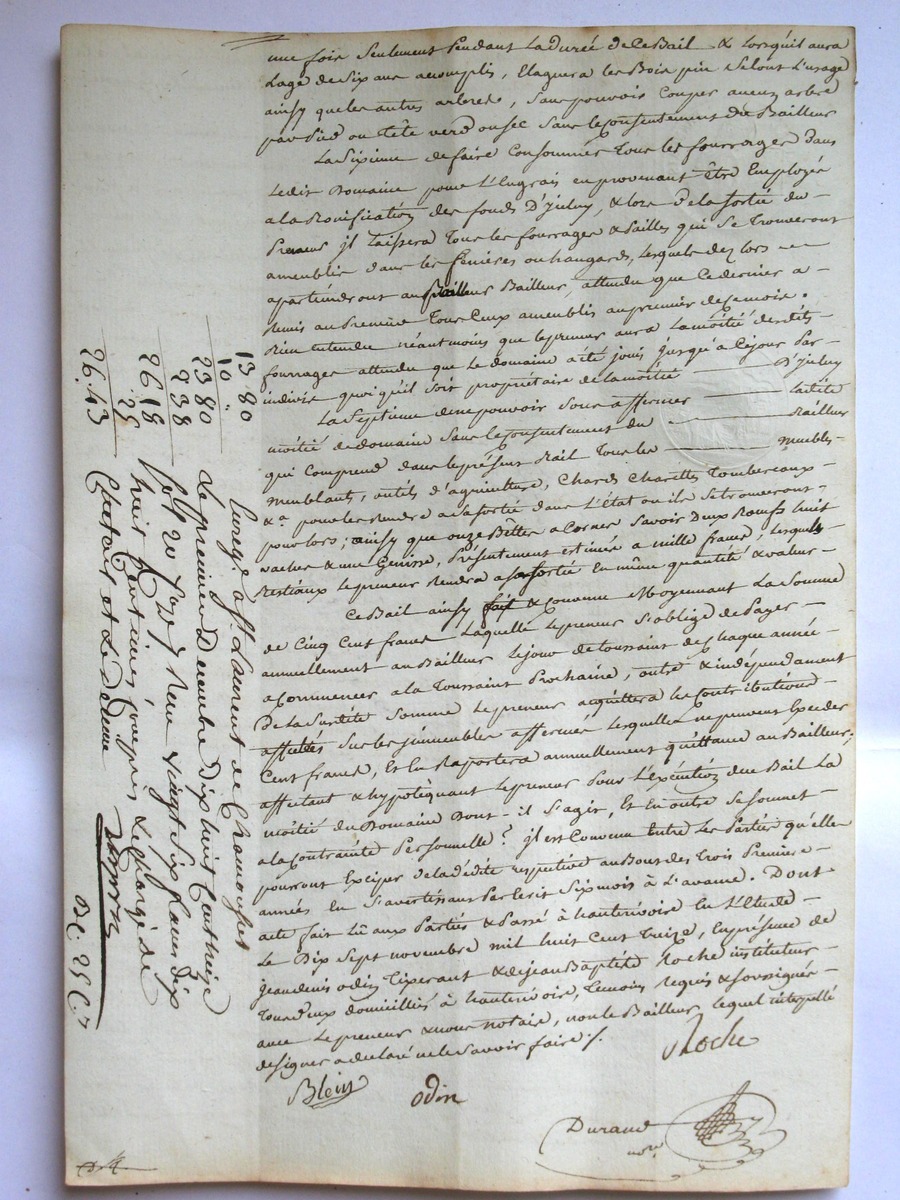 une fois seulement pendant la durée de ce Bail & lorsquil aura
Lage de six ans acomplis, Elaguera les Bois pin selont L'usage
ainsy que les autres arbres, sans pouvoir couper aucun arbre
par pied ou tête verd ou sec sans le consentement du Bailleur
La sixieme de faire consommer tous les fourrages dans
Ledit Domaine pour L'Engrais en provenant être Employés
a la Bonification des fonds D'yceluy, & lors de la sortie du
Preneur jl laissera tous les fourrages & Pailles qui se trouveront
ameublis dans les fenières ou hangards, lesquels dez lors
apartiendront au Bailleur, attendu que ce dernier a
Remis au Preneur tous ceux ameublis au premier de ce mois.
Bien entendu néantmoins que le preneur aura la moitié desdits
fourrages attendu que le domaine a été jouis jusqu'a ce jour par
indivis quoi qu'il soit propriétaire de la moitié D'yceluy
La Septieme de ne pouvoir sous affermer ladite
moitié de domaine sans le consentement du Bailleur
qui comprend dans le présent Bail tous les meubles
meublants, outils d'agriculture, Chards Charettes Tombereaux
&a pour les rendre a la sortie dans L'état ou ils se trouveront
pour lors; ainsy que onze Bêttes a Cornes savoir Deux Bœufs huit
vaches & une Genisse, Présentement estimés a mille francs, lesquels
Bestiaux le preneur Rendra a sa sortie En même quantité & valeur
Ce Bail ainsy fait & convenu Moyennant La Somme
de Cinq Cent francs Laquelle le preneur s'oblige de Payer
annuellement au Bailleur le jour de toussaint de chaque année
a Commencer a la Toussaint Prochaine, outre & indépendament
De la susdite Somme Le preneur acquittera les Contributions
affectés sur les jmmeubles affermés lesquelles ne peuvent Exceder
Cent francs, Et En Raportera annuellement quittance au Bailleur;
affectant & hypotéquant Le preneur Pour L'Exécution du Bail La
moitié du Domaine Dont il s'agit, Et En outre se soumet
a la Contrainte Personnelle. jl est Convenu Entre les Parties qu'elles
pourront Exciper de la dédite respective au Bout des trois Premieres
années En s'avertissant Par Ecrit Six mois à L'avance. Dont
acte fait Lû aux Parties & Passé à hauterivoire En L'Etude
Le Dix Sept novembre mil huit Cent Treize, En présence de
Jean denis odin Tixerant & de jean Baptiste Roche instituteur
Tous deux domicilliés à hauterivoire, Temoins Requis & soussignés
avec Le preneur & nous notaire, non le Bailleur, lequel interpellé
de signer a déclaré ne le savoir faire /.
Roche
Blein
odin
Durand
nore
13 80
10 "
23 80
2 38
26 18
25
26.43
Enregé a St Laurent de Chamousset
Le premier Decembre Dix huit Cent treize
fol 20
Reçu vingt Six francs Dix
huit Centimes